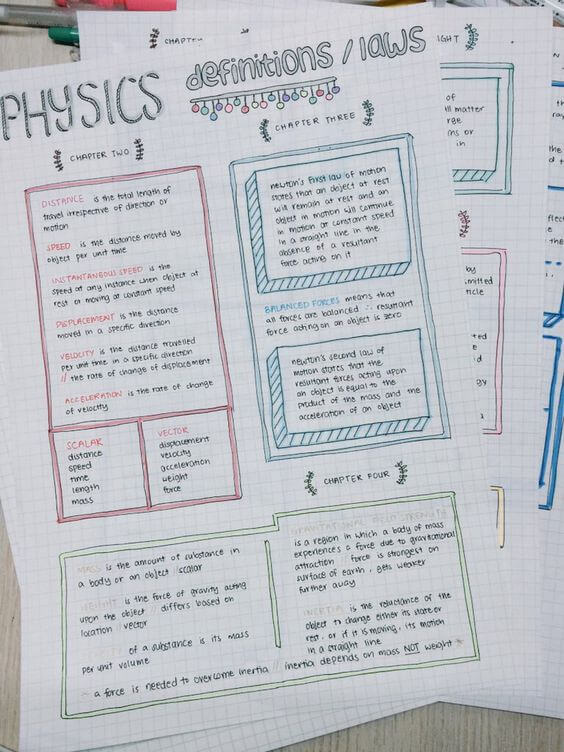 PHYSICS definitions / laws
CHAPTER TWO
DISTANCE is the total length of
travel irrespective of direction or
motion
SPEED is the distance moved by
object per unit time
INSTANTANEOUS SPEED is the
speed at any instance when object at
rest or moving at constant speed
DISPLACEMENT is the distance
moved in a specific direction
VELOCITY is the distance travelled
per unit time in a specific direction
// the rate of change of displacement
ACCELERATION is the rate of change
of velocity
SCALAR
distance
speed
time
length
mass
VECTOR
displacement
velocity
acceleration
weight
force
CHAPTER THREE
newton's First law of motion
states that an object at rest
will remain at rest and an
object in motion will continue
in motion at constant speed
in a straight line in the
absence of a resultant
force acting on it
BALANCED FORCES means that
all forces are balanced ∴ resultant
force acting on an object is zero
newton's second law of
motion states that the
resultant forces acting upon
an object is equal to the
product of the mass and the
acceleration of an object
CHAPTER FOUR
MASS is the amount of substance in
a body or an object // scalar
WEIGHT is the force of gravity acting
upon the object // differs based on
location // vector
of a substance is its mass
per unit volume
GRAVITATIONAL FIELD STRENGTH
is a region in which a body of mass
experiences a force due to gravitational
attraction force is strongest on
surface of earth, gets weaker
further away
INERTIA is the reluctance of the
object to change either its state or
rest, or if it is moving, its motion
in a straight line
a force is needed to overcome inertia // inertia depends on mass NOT weight
CHAPTER
of
matter
ms or
in
by
mitted
ticle